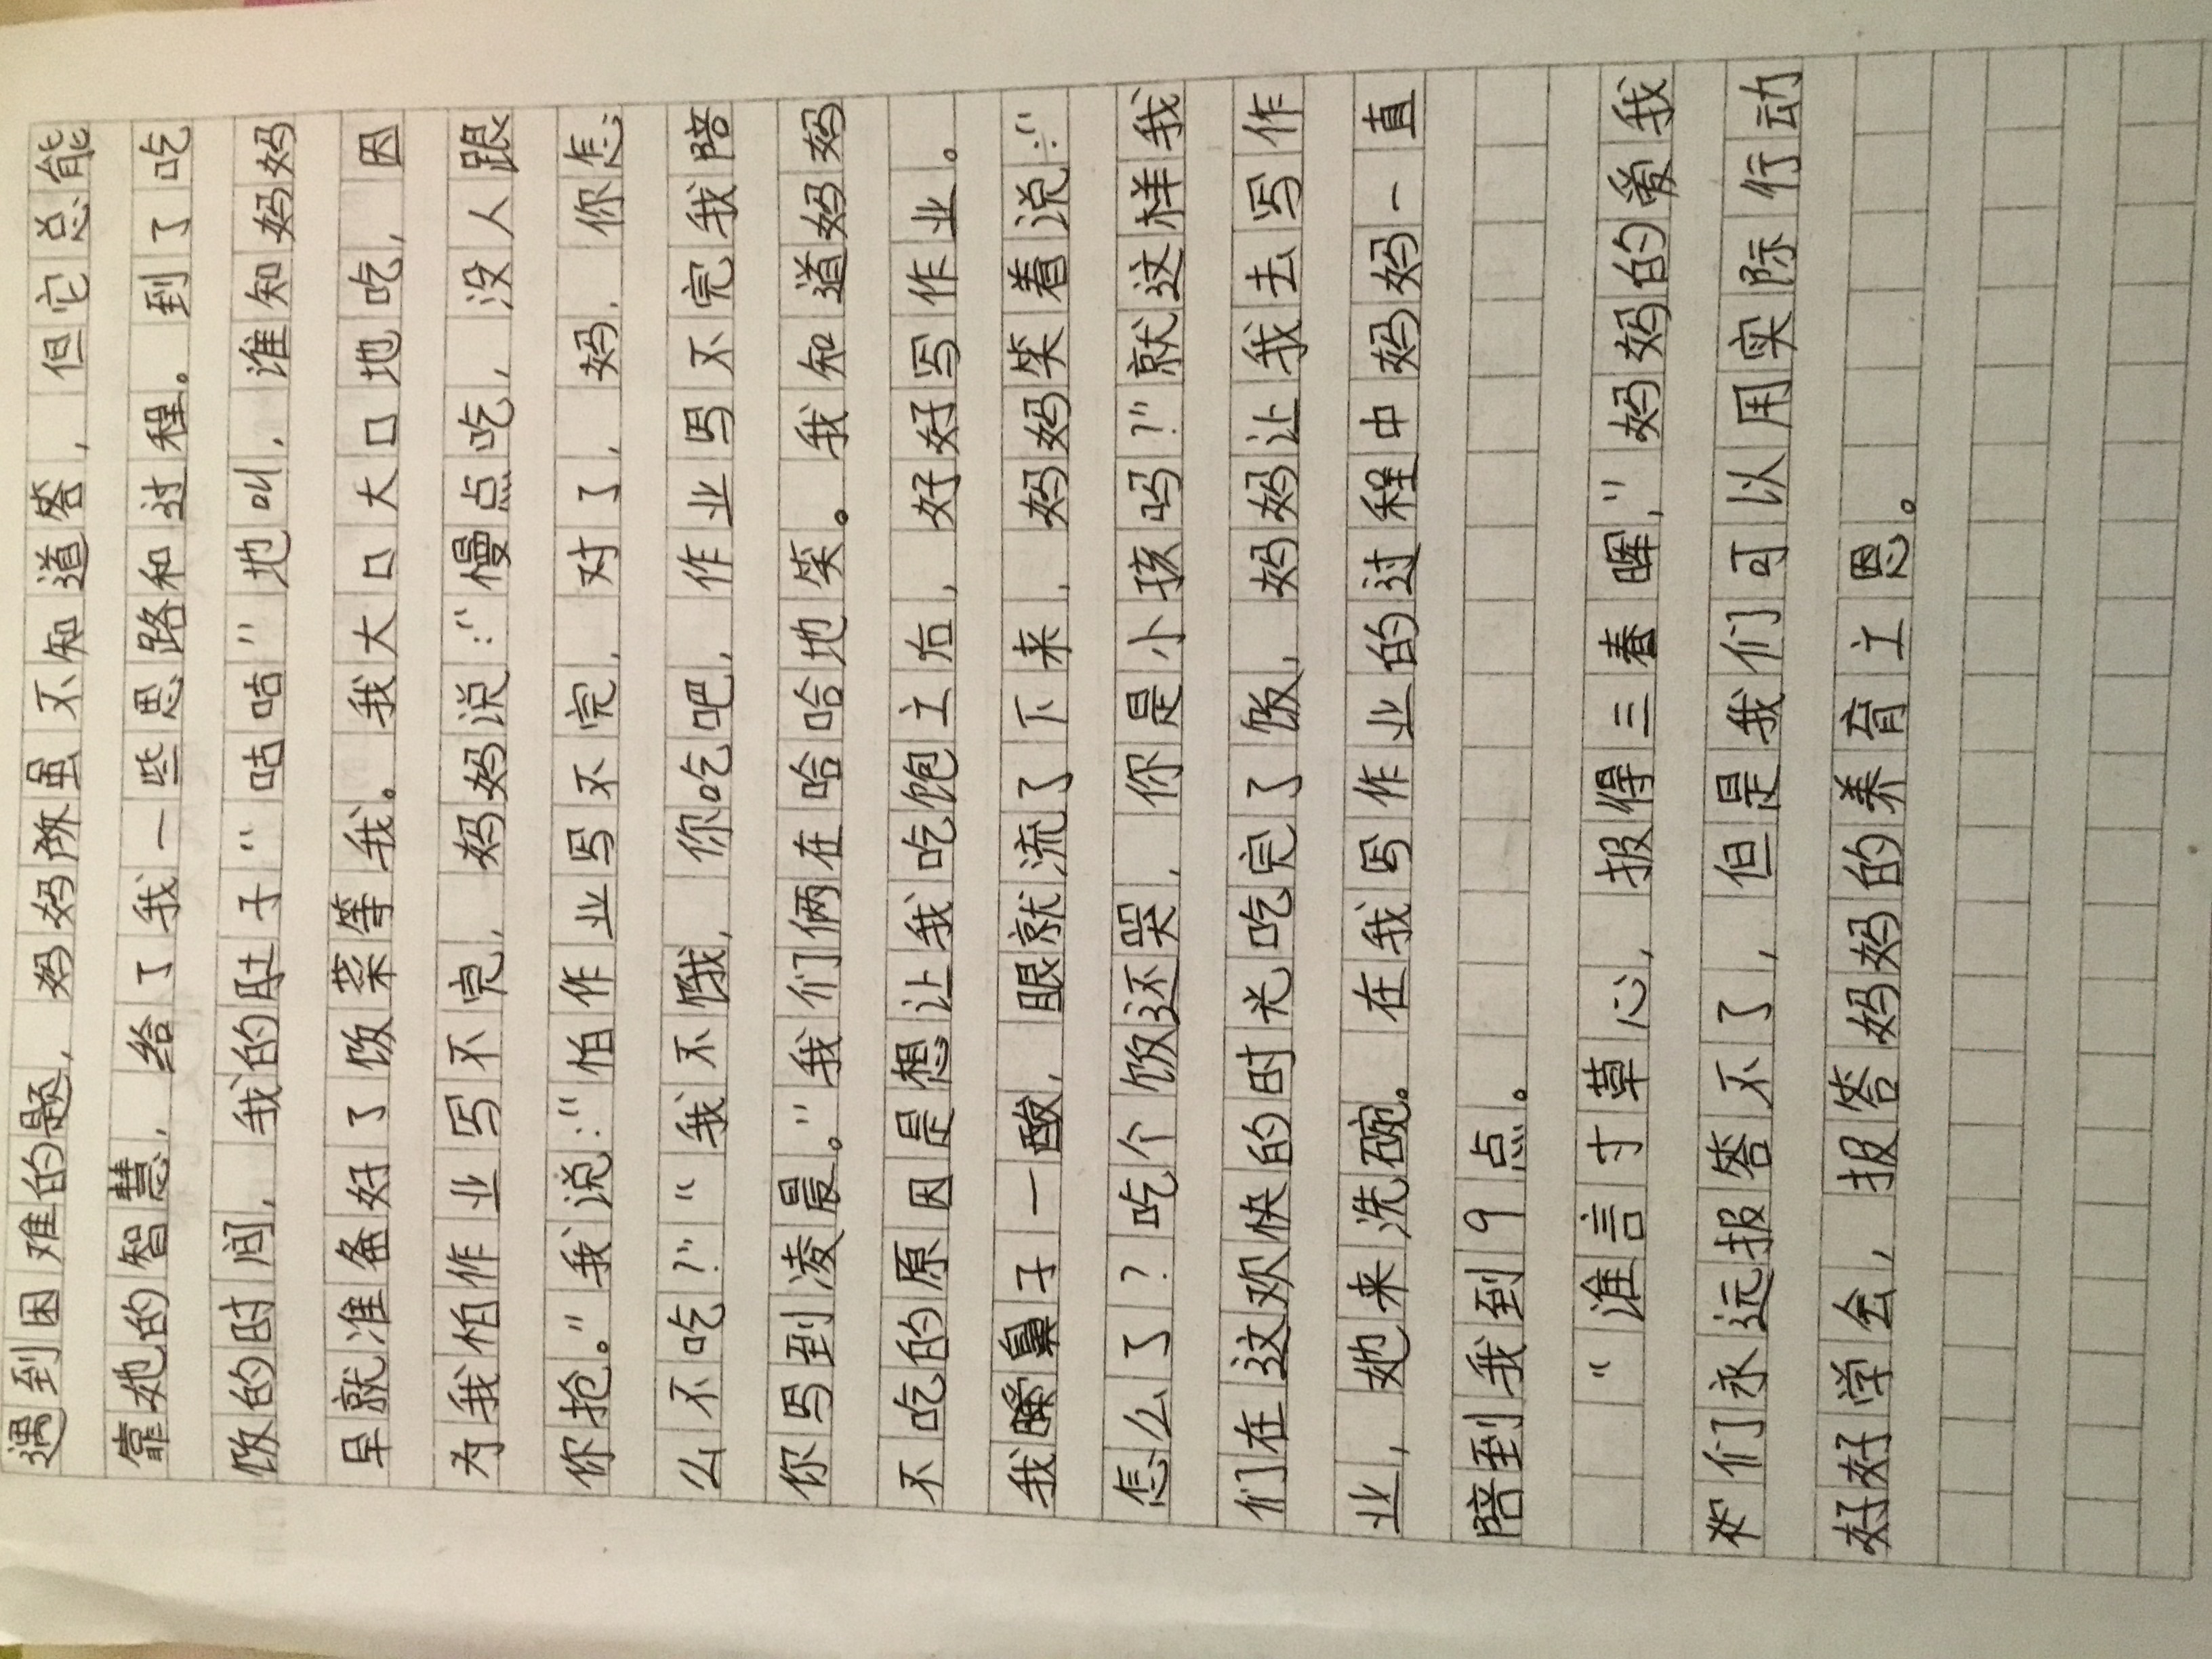 遇到困难的题，妈妈虽不知道答，但它总能
靠她的智慧，给了我一些思路和过程。到了吃
饭的时间，我的肚子“咕咕”地叫，谁知妈妈
早就准备好了饭菜等我。我大口大口地吃，因
为我怕作业写不完，妈妈说：“慢点吃，没人跟
你抢。”我说：“怕作业写不完，对了，妈，你怎
么不吃？”“我不饿，你吃吧，作业写不完我陪
你写到凌晨。”我们俩在哈哈地笑。我知道妈妈
不吃的原因是想让我吃饱之后，好好写作业。
我鼻子一酸，眼就流了下来，妈妈笑着说：“
怎么了？吃个饭还哭，你是小孩吗？”就这样我
们在这欢快的时光吃完了饭，妈妈让我去写作
业，她来洗碗。在我写作业的过程中妈妈一直
陪到我到9点。
“谁言寸草心，报得三春晖，”妈妈的爱我
们永远报答不了，但是我们可以用实际行动
好好学会，报答妈妈的养育之恩。